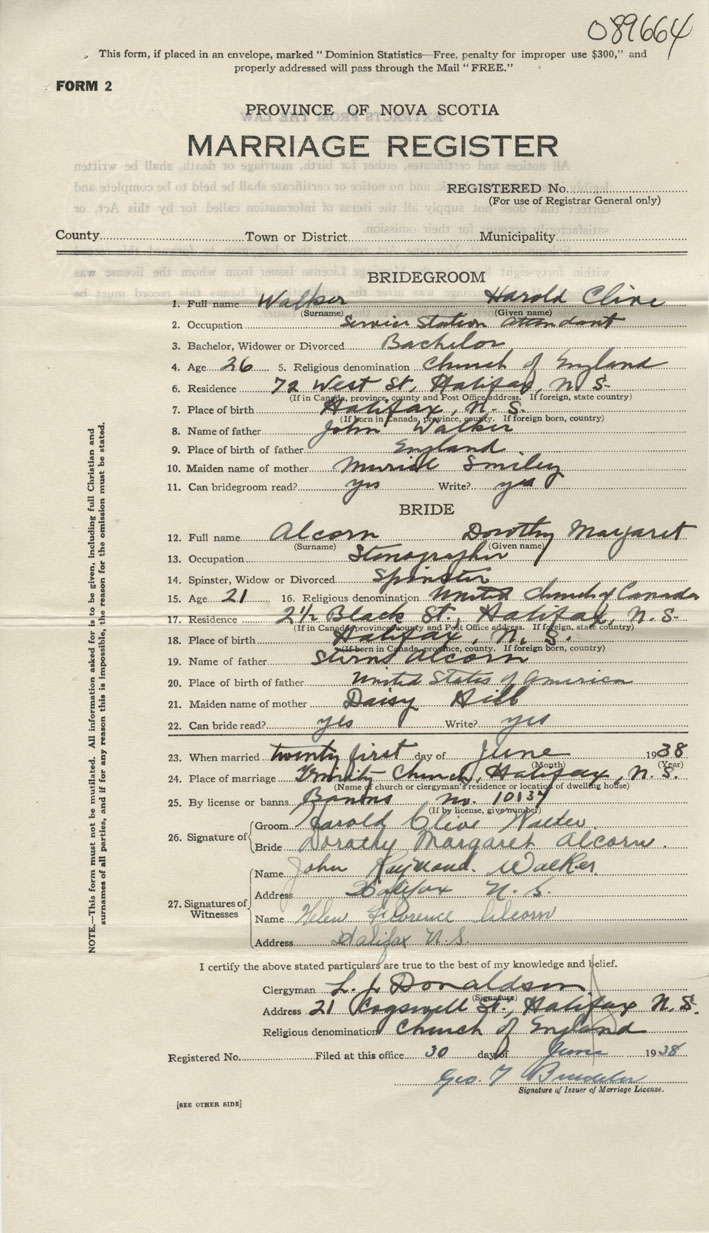 089664
This form, if placed in an envelope, marked "Dominion Statistics—Free, penalty for improper use $300," and
properly addressed will pass through the Mail "FREE."
FORM 2
PROVINCE OF NOVA SCOTIA
MARRIAGE REGISTER
REGISTERED No.
(For use of Registrar General only)
County Town or District Municipality
BRIDEGROOM
1. Full name Walker Harold Clive
(Surname) (Given name)
2. Occupation Service Station Attendant
3. Bachelor, Widower or Divorced Bachelor
4. Age 26 5. Religious denomination Church of England
6. Residence 72 West St, Halifax, N.S.
(If in Canada, province, county and Post Office address. If foreign, state country)
7. Place of birth Halifax, N.S.
(If born in Canada, province, county. If foreign born, country)
8. Name of father John Walker
9. Place of birth of father England
10. Maiden name of mother Smiley
11. Can bridegroom read? yes Write? yes
BRIDE
12. Full name Alcorn Dorothy Margaret
(Surname) (Given name)
13. Occupation Stenographer
14. Spinster, Widow or Divorced Spinster
15. Age 21 16. Religious denomination United Church of Canada
17. Residence 2½ Black St., Halifax, N.S.
(If in Canada, province, county and Post Office address. If foreign, state country)
18. Place of birth Halifax, N.S.
(If born in Canada, province, county. If foreign born, country)
19. Name of father Alcorn
20. Place of birth of father United States of America
21. Maiden name of mother Daisy Hill
22. Can bride read? yes Write? yes
23. When married twenty first day of June 1938
(Month) (Year)
24. Place of marriage Trinity Church, Halifax, N.S.
(Name of church or clergyman's residence or location of dwelling house)
25. By license or banns Banns no. 10134
(If by license, give number)
26. Signature of
Groom Harold Clive Walker
Bride Dorothy Margaret Alcorn.
27. Signatures of Witnesses
Name John Raymond Walker
Address Halifax N.S.
Name Helen Florence Alcorn
Address Halifax N.S.
I certify the above stated particulars are true to the best of my knowledge and belief.
Clergyman L. J. Donaldson
(Signature)
Address 21 Cogswell St., Halifax N.S.
Religious denomination Church of England
Registered No. Filed at this office 30 day of June 1938
Geo. T
Signature of Issuer of Marriage License.
[SEE OTHER SIDE]
NOTE.—This form must not be mutilated. All information asked for is to be given, including full Christian and
surnames of all parties, and if for any reason this is impossible, the reason for the omission must be stated.